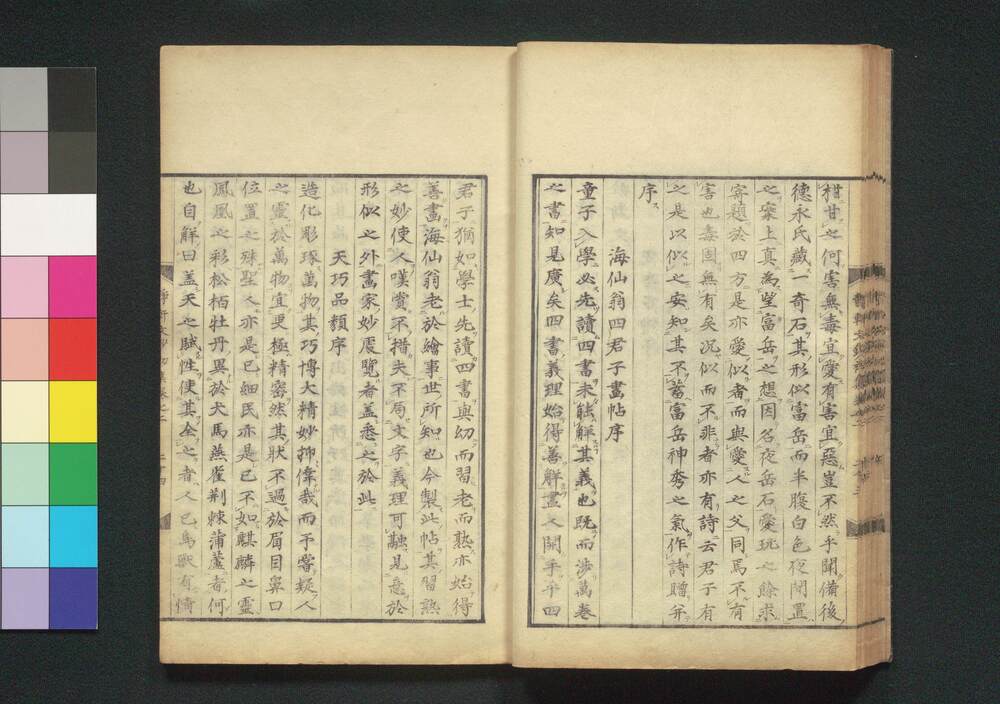 柑甘之何害無毒宜愛有害宜惡豈不然乎聞備後
德永氏藏一奇石其形似富岳而半腹白色夜闇置
之案上真為望富岳之想因名夜岳石愛玩之餘求
寄題於四方是亦愛似者而與愛人之父同焉不有
害也毒固無有矣況似而不非者亦有詩云君子有
之是以似之安知其不蓄富岳神秀之氣作詩贈并
序
海仙翁四君子畫帖序
童子入學必先讀四書未能解其義也既而涉萬卷
之書知見廣矣四書義理始得善解畫之開手乎四
君子猶如學士先讀四書與幼而習老而熟亦始得
善畫海仙翁老於繪事世所知也今製此帖其習熟
之妙使人嘆賞不措夫不局文字義理可融見意於
形似之外畫家妙處覽者盖悉之於此
天巧品類序
造化彫琢萬物其巧博大精妙抑偉哉而予嘗疑人
之靈於萬物宜更極精密然其狀不過於眉目鼻口
位置之殊聖人亦是已細民亦是已不如麒麟之靈
鳳凰之彩松栢牡丹異於犬馬燕雀荊棘蒲蘆者何
也自解曰盖天之賦性使其全之者人已鳥獸有情